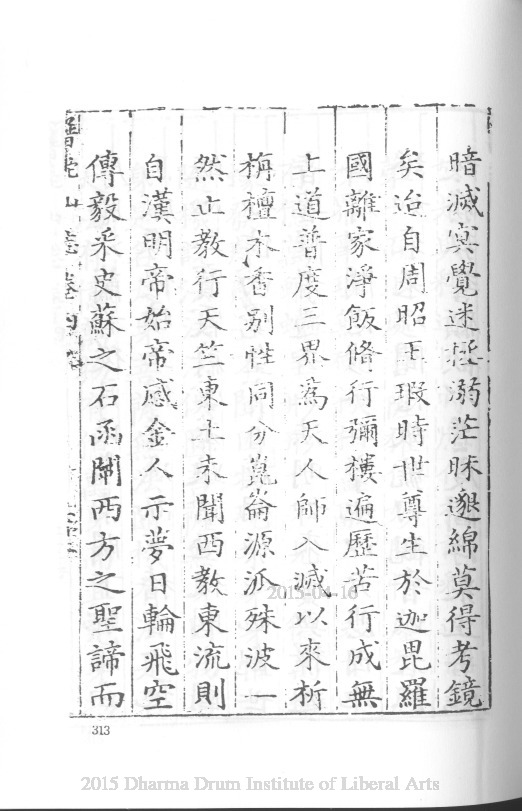 暗滅寞覺迷拯溺茫昧邈綿莫得考鏡
矣迨自周昭王瑕時世尊生於迦毘羅
國離家淨飯脩行彌樓遍歷苦行成無
上道普度三界為天人師入滅以來析
栴檀木香别性同分崑崙源派殊波一
然止教行天竺東土未聞西教東流則
自漢明帝始帝感金人示夢日輪飛空
傳毅采史蘇之石函闡西方之聖諦而
山志卷
313
2015-04-16
2015 Dharma Drum Institute of Liberal Arts